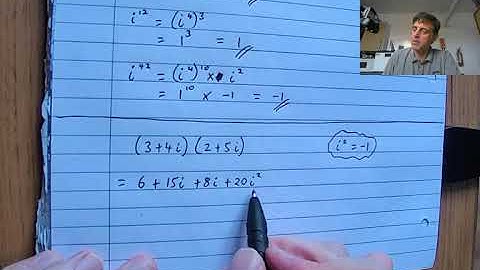 i¹² = (i⁴)³
= 1³ = 1
i⁴² = (i⁴)¹⁰ × i²
= 1¹⁰ × -1 = -1
(3+4i)(2+5i) i² = -1
= 6 + 15i + 8i + 20i²